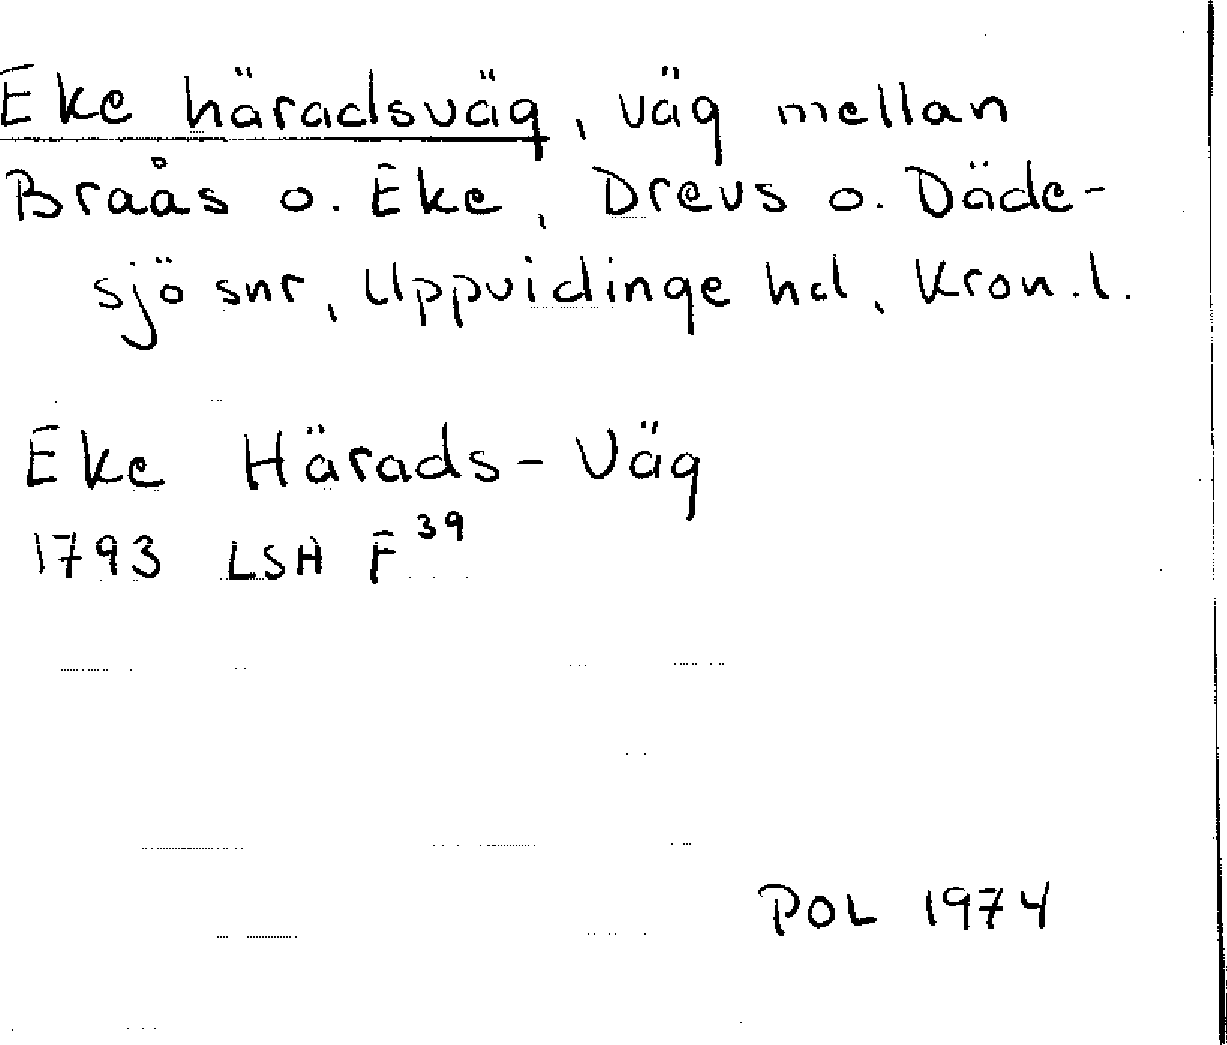 Eke häradsväg, väg mellan
Braås o. Eke, Drevs o. Däde-
sjö snr, Uppvidinge hd, Kron.l.
Eke Härads-Väg
1793 LSH F39
POL 1974